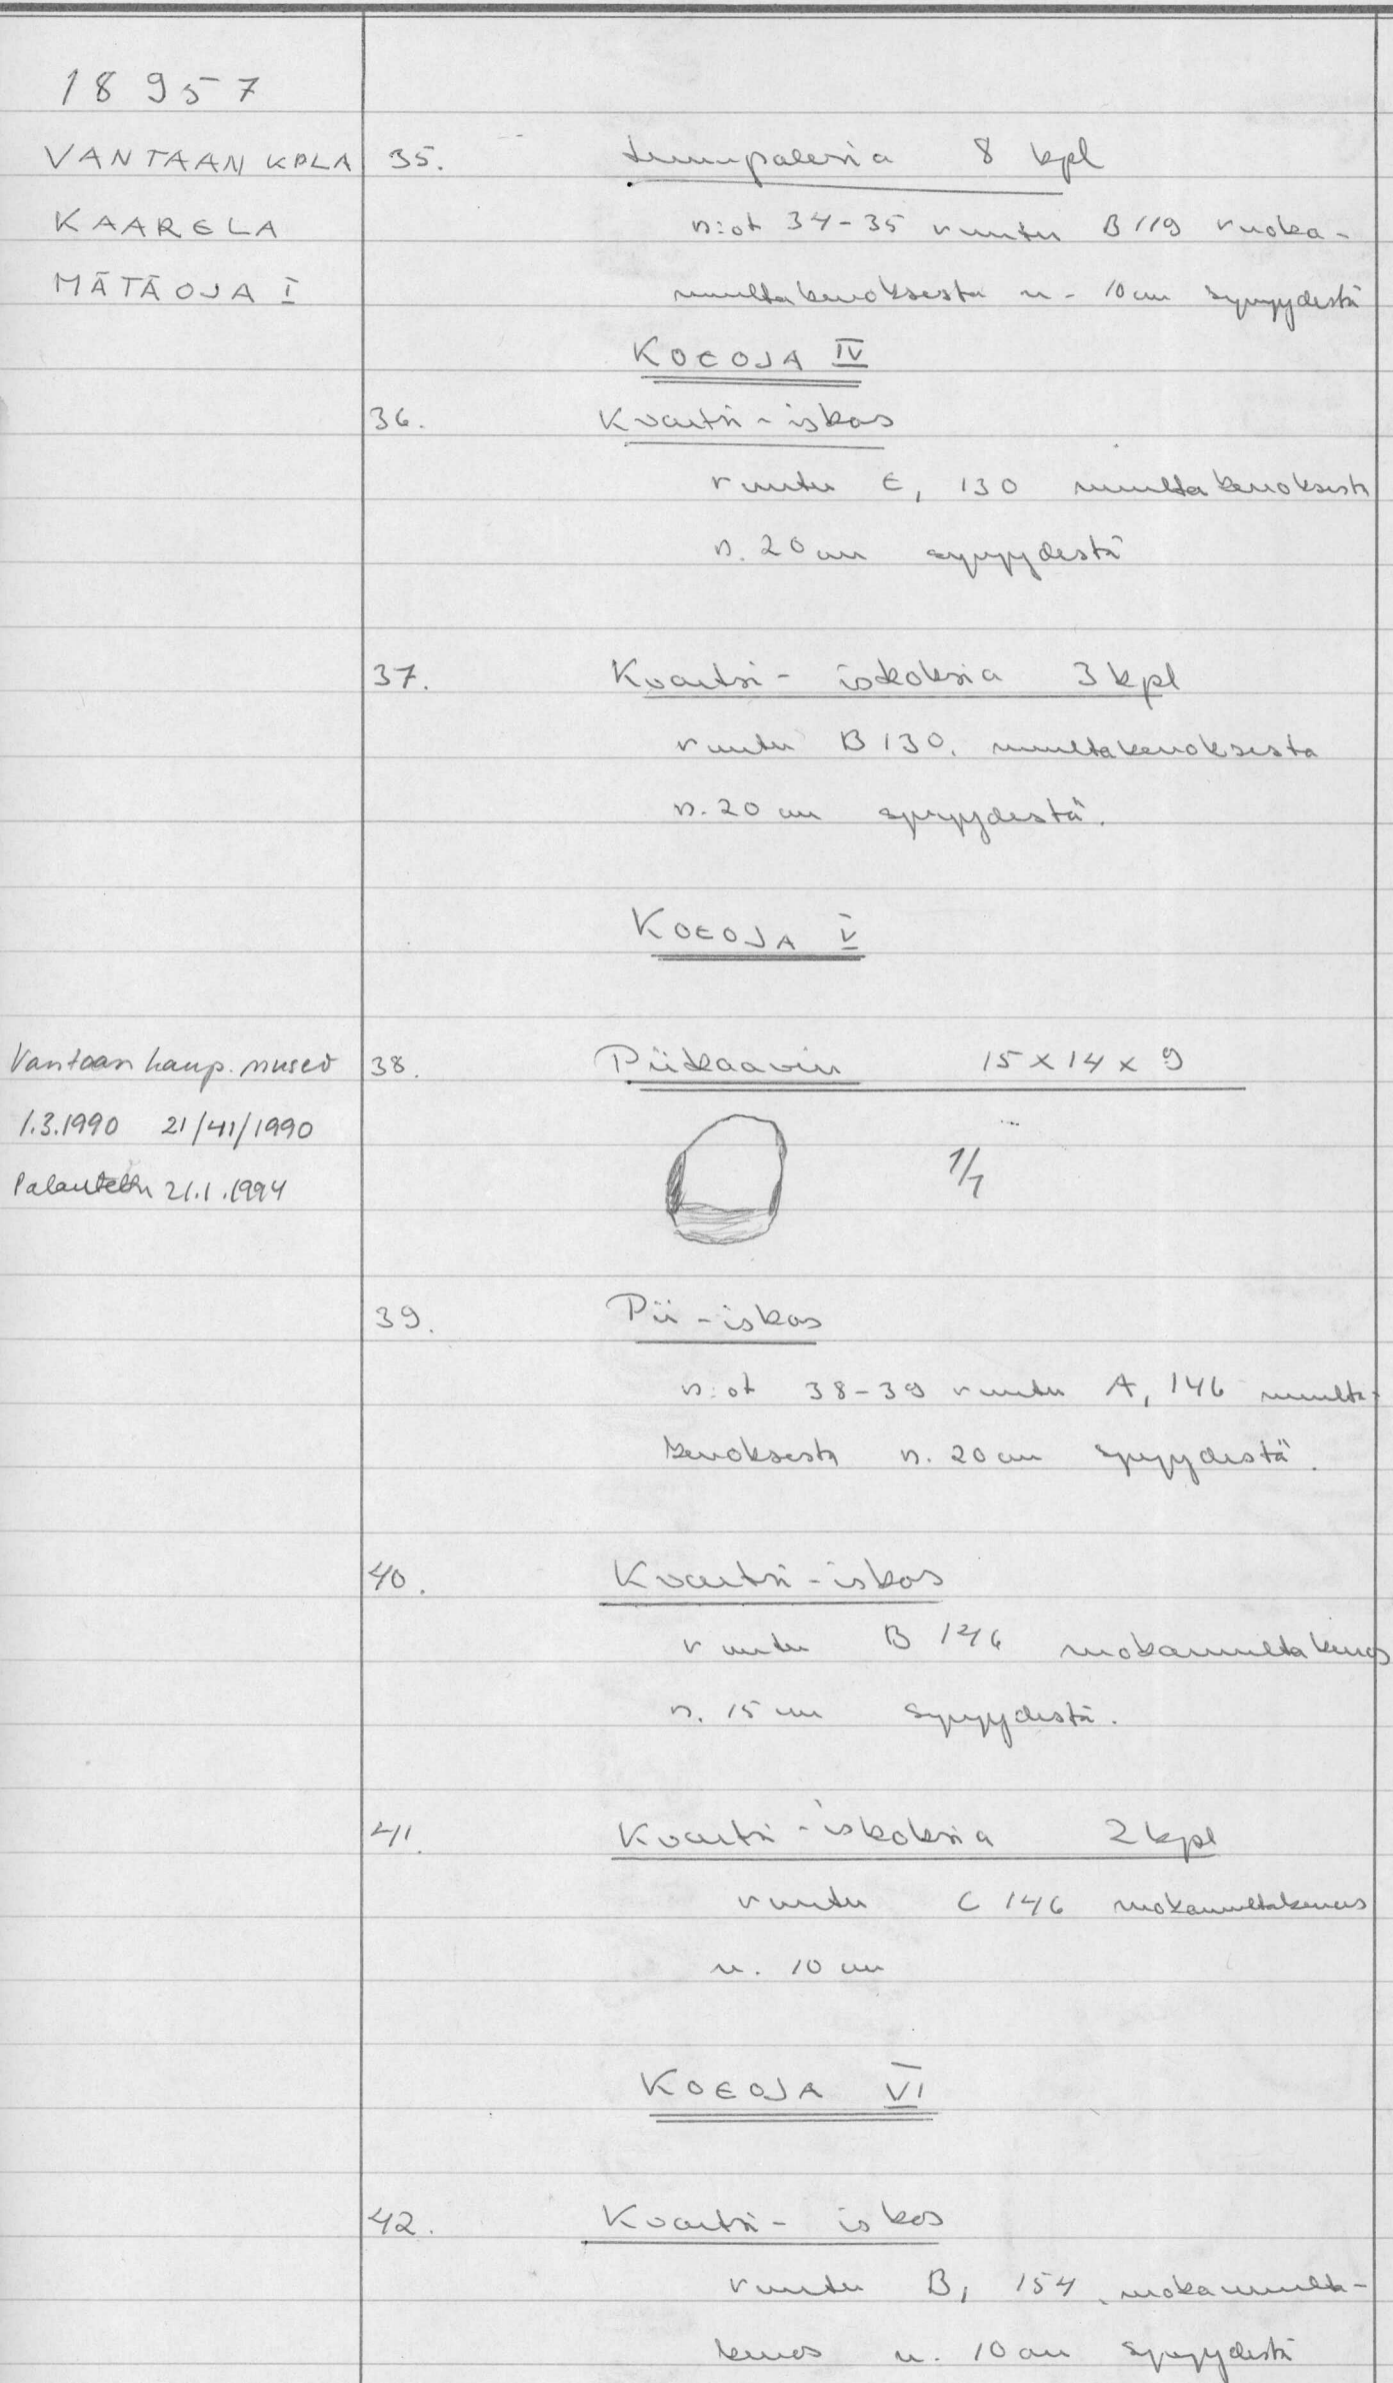 18957
VANTAAN KPLA
KAARELA
MÄTÄOJA I
35. Luunpalasia 8 kpl
n:ot 34-35 ruutu B 119 ruoka-
multakerroksesta n. 10 cm syvyydestä
KOEOJA IV
36. Kvartsi-iskos
ruutu E, 130 multakerroksesta
n. 20 cm syvyydestä
37. Kvartsi-iskoksia 3 kpl
ruutu B 130. multakerroksesta
n. 20 cm syvyydestä.
KOEOJA V
Vantaan kaup. museo
1.3.1990 21/41/1990
Palautettu 21.1.1994
38. Piikaavin 15 x 14 x 9
1/1
39. Pii-iskos
n:ot 38-39 ruutu A, 146 multa-
kerroksesta n. 20 cm syvyydestä.
40. Kvartsi-iskos
ruutu B 146 ruokamultakerros
n. 15 cm syvyydestä.
41. Kvartsi-iskoksia 2 kpl
ruutu C 146 ruokamultakerros
n. 10 cm
KOEOJA VI
42. Kvartsi-iskos
ruutu B, 154, ruokamulta-
kerros n. 10 cm syvyydestä